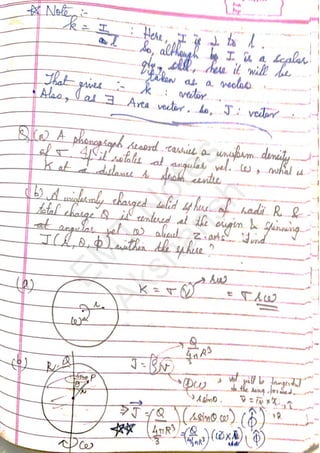 * Note :-
k = I / l : Here, I is ⊥ to l.
So, although I is a scalar
qty, still, here it will be
taken as a vector
That gives :- k : vector
• Also, as ∃ Area vector. So, J : vector
Q. (a) A phonograph record carries a uniform density
of σ. If it rotates at angular vel. ω, what is
K at a distance r from centre
(b) A uniformly charged solid sphere of radii R &
total charge Q is centered at the origin & spinning
at angular vel ω about z-axis. Find
J(r, θ, φ) within the sphere?
(a)
r
ω
K = σ(v) → rω
= σrω
(b)
R
Q
P
θ
r
ω
J = ρv
Q / 4/3 πR³
vel will be tangential
to the ring formed.
→ rsinθ.
⇒ J = (Q / 4/3 πR³) (rsinθ ω) φ̂
= (Q / 4/3 πR³) (ω × r)